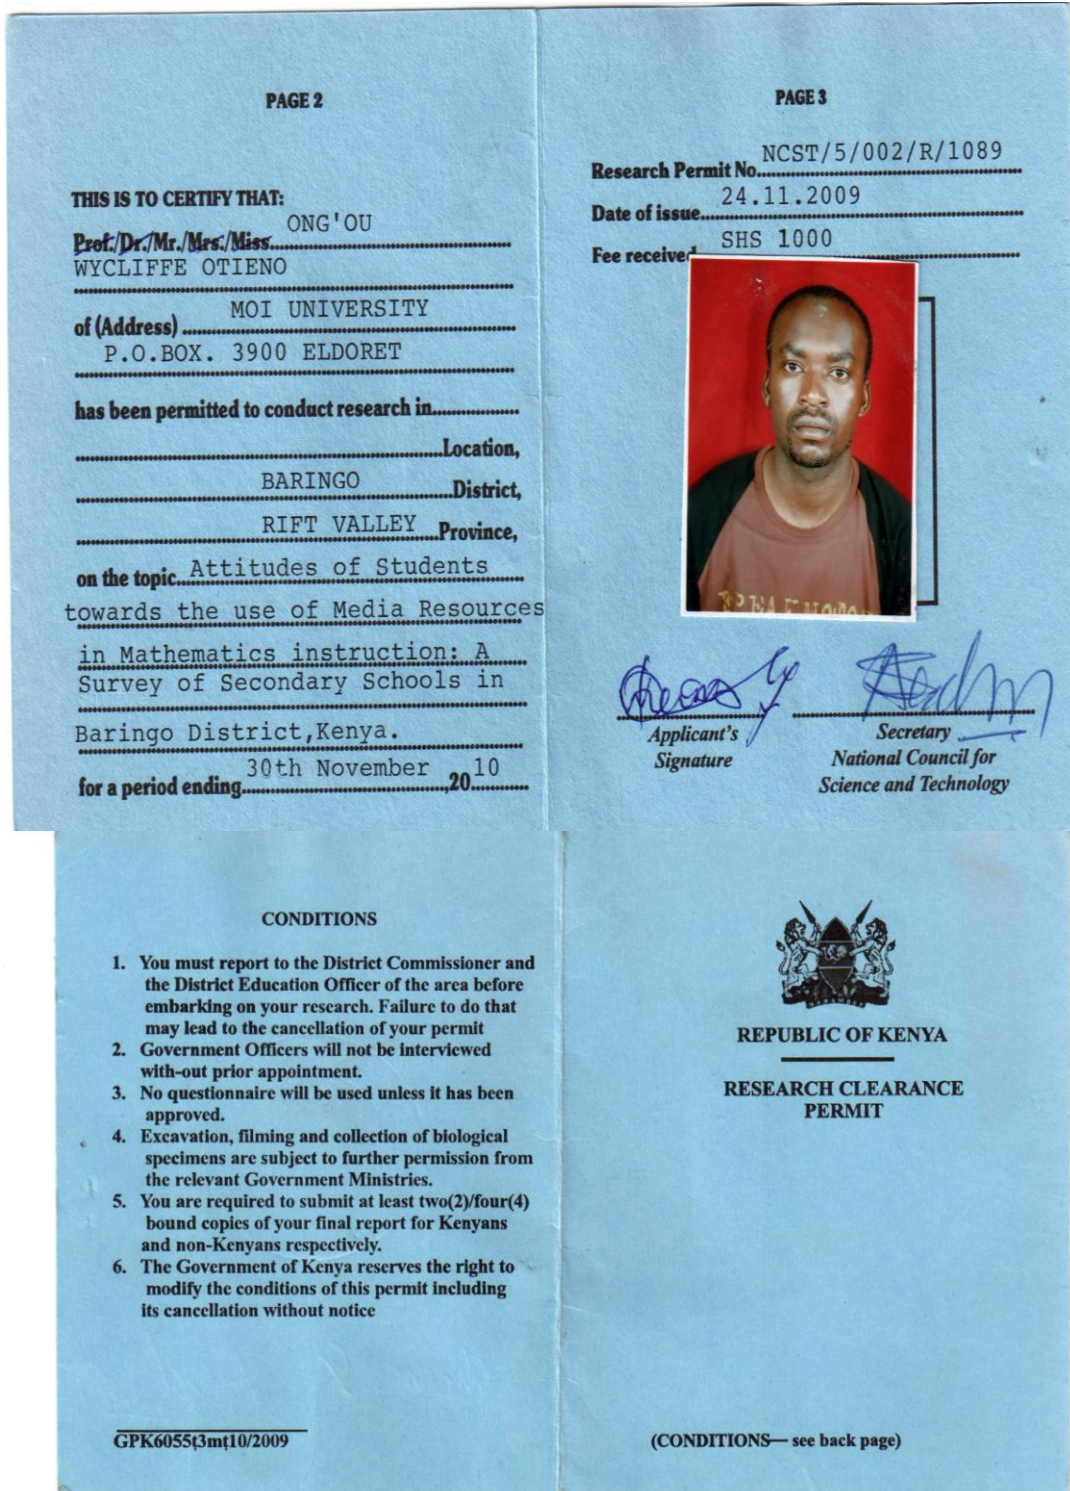 PAGE 2
THIS IS TO CERTIFY THAT:
Prof./Dr./Mr./Mrs./Miss.......ONG'OU
WYCLIFFE OTIENO
of (Address).......MOI UNIVERSITY
P.O.BOX. 3900 ELDORET
has been permitted to conduct research in.......
.......Location,
BARINGO.......District,
RIFT VALLEY.......Province,
on the topic.......Attitudes of Students
towards the use of Media Resources
in Mathematics instruction: A
Survey of Secondary Schools in
Baringo District,Kenya.
for a period ending.......30th November.......,20 10
PAGE 3
Research Permit No.......NCST/5/002/R/1089
Date of issue.......24.11.2009
Fee received SHS 1000
Applicant's
Signature
Secretary
National Council for
Science and Technology
CONDITIONS
1. You must report to the District Commissioner and
the District Education Officer of the area before
embarking on your research. Failure to do that
may lead to the cancellation of your permit
2. Government Officers will not be interviewed
with-out prior appointment.
3. No questionnaire will be used unless it has been
approved.
4. Excavation, filming and collection of biological
specimens are subject to further permission from
the relevant Government Ministries.
5. You are required to submit at least two(2)/four(4)
bound copies of your final report for Kenyans
and non-Kenyans respectively.
6. The Government of Kenya reserves the right to
modify the conditions of this permit including
its cancellation without notice
GPK6055t3mt10/2009
REPUBLIC OF KENYA
RESEARCH CLEARANCE
PERMIT
(CONDITIONS— see back page)